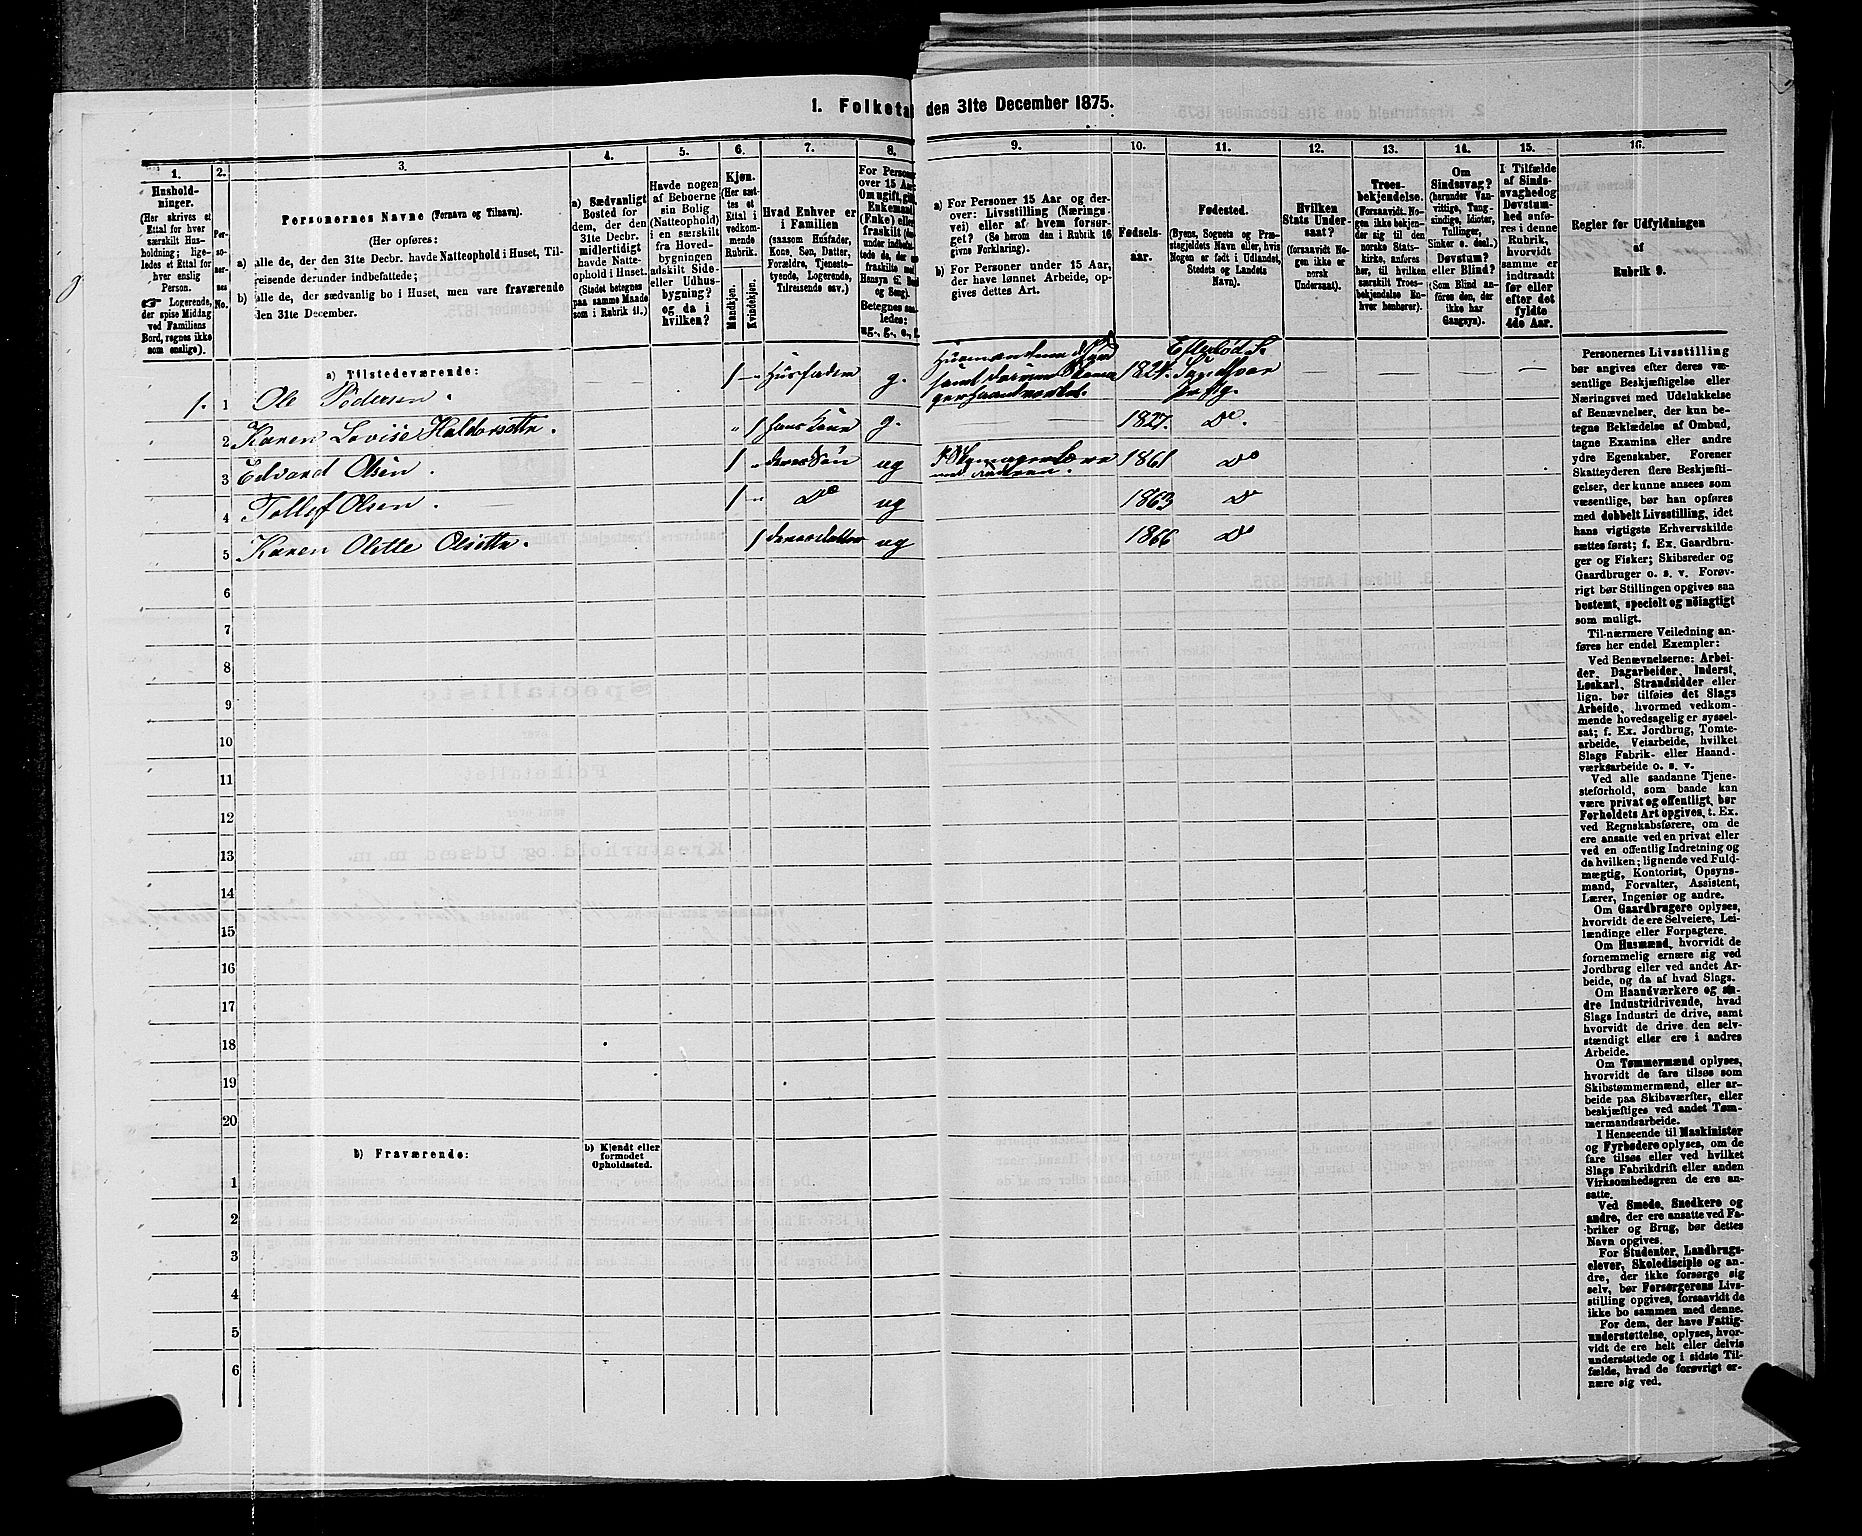 1. Folketal den 31te December 1875.
1.
Hushold-
ninger.
(Her skrives et
Ettal for hver
særskilt Hus-
holdning; lige-
ledes et Ettal for
hver enslig
Person.
☞ Logerende,
der spise Middag
ved Familiens
Bord, regnes ikke
som enslige).
2.
Per-
so-
ner-
nes
No.
3.
Personernes Navne (Fornavn og Tilnavn).
(Her opføres:
a) alle de, der den 31te Decbr. havde Natteophold i Huset, Til-
reisende derunder indbefattede;
b) alle de, der sædvanlig bo i Huset, men vare fraværende
den 31te December.
4.
a) Sædvanligt
Bosted for
dem, der den
31te Decbr.
midlertidigt
havde Natte-
ophold i Huset.
(Stedet betegnes
paa samme Maade
som i Rubrik 11.)
5.
Havde nogen
af Beboerne
sin Bolig
(Natteophold)
i en særskilt
fra Hoved-
bygningen
adskilt Side-
eller Udhus-
bygning?
og da i
hvilken?
6.
Kjøn.
(Her sæt-
tes et
Ettal i
vedkom-
mende
Rubrik.
Mandkjøn.
Kvindekjøn.
7.
Hvad Enhver er
i Familien
(saasom Husfader,
Kone, Søn, Datter,
Forældre, Tjeneste-
tyende, Logerende,
Tilreisende osv.)
8.
For Personer
over 15 Aar:
Om ugift, gift,
Enkemand
(Enke) eller
fraskilt
Betegnes saa-
ledes:
ug., g., e., f.
9.
a) For Personer 15 Aar og der-
over: Livsstilling (Nærings-
vei) eller af hvem forsør-
get? (Se herom den i Rubrik 16
givne Forklaring).
b) For Personer under 15 Aar,
der have lønnet Arbeide, op-
gives dettes Art.
10.
Fødsels-
aar.
11.
Fødested.
(Byens, Sognets og Præ-
stegjeldets Navn eller, hvis
Nogen er født i Udlandet,
Stedets og Landets
Navn).
12.
Hvilken
Stats Under-
saat?
(foraavidt No-
gen ikke er
norsk
Undersaat).
13.
Troes-
bekjendelse.
(Forsaavidt. No-
gen ikke bekjen-
der sig til den
norske Stats-
kirke, anføres
her, til hvilken
særskilt Troes-
bekjendelse En-
hver henhører).
14.
Om
Sindssvag?
(herunder Van-
vittige, Tung-
sindige, Idioter,
Tullinger,
Sinker o. desl.)
Døvstum?
eller Blind?
(Som Blind an-
føres den, der
ikke har
Gangsyn).
15.
I Tilfælde
af Sinds-
svaghed og
Døvstum-
hed anfø-
res i denne
Rubrik,
hvorvidt
samme er
indtraadt
før eller
efter det
fyldte
4de Aar.
16.
Regler for Udfyldningen
af
Rubrik 9.
a) Tilstedeværende:
1. 1 Ole Pedersen. 1 " Husfader g. 1824.
2 Karen Lovise Haldorsdttr. " 1 hans Kone g. 1827. Do.
3 Edvard Olsen. 1 " deres Søn ug 1861 Do
4 Tollef Olsen. 1 " Do ug 1863 Do
5 Karen Olette Olsdttr. 1 deres datter ug 1866 Do
6
7
8
9
10
11
12
13
14
15
16
17
18
19
20
b) Fraværende:
b) Kjendt eller
formodet
Opholdssted.
1
2
3
4
5
6
Personernes Livsstilling
bør angives efter deres væ-
sentlige Beskjæftigelse eller
Næringsvei med Udelukkelse
af Benævnelser, der kun be-
tegne Beklædelse af Ombud,
tagne Examina eller andre
ydre Egenskaber. Forener
Skatteyderen flere Beskjæfti-
gelser, der kunne ansees som
væsentlige, bør han opføres
med dobbelt Livsstilling, idet
hans vigtigste Erhvervskilde
sættes først; f. Ex. Gaardbru-
ger og Fisker; Skibsreder og
Gaardbruger o. s. v. Forøv-
rigt bør Stillingen opgives saa
bestemt, specielt og nøiagtigt
som muligt.
Til nærmere Veiledning an-
føres her endel Exempler:
Ved Benævnelserne: Arbei-
der, Dagarbeider, Inderst,
Løskarl, Strandsidder eller
lign. bør tilføies det Slags
Arbeide, hvormed vedkom-
mende hovedsagelig er syssel-
sat; f. Ex. Jordbrug, Tomte-
arbeide, Veiarbeide, hvilket
Slags Fabrik- eller Haand-
værksarbeide o. s. v.
Ved alle saadanne Tjene-
steforhold, som baade kan
være privat og offentligt, bør
Forholdets Art opgives, t. Ex.
ved Regnskabsførere, om de
ere ansatte ved en privat eller
ved en offentlig Indretning og
da hvilken; lignende ved Fuld-
mægtig, Kontorist, Opsyns-
mand, Forvalter, Assistent,
Lærer, Ingeniør og andre.
Om Gaardbrugere oplyses,
hvorvidt de ere Selveiere, Lei-
lændinge eller Forpagtere.
Om Husmænd, hvorvidt de
fornemmelig ernære sig ved
Jordbrug eller ved andet Ar-
beide, og da af hvad Slags.
Om Haandværkere og an-
dre Industridrivende, hvad
Slags Industri de drive, samt
hvorvidt de drive den selv-
stændigt eller ere i andres
Arbeide.
Om Tømmermænd oplyses,
hvorvidt de fare tilsøs som
Skibstømmermænd, eller ar-
beide paa Skibsværfter, eller
beskjæftiges ved andet Tøm-
mermandsarbeide.
I Henseende til Maskinister
og Fyrbødere oplyses, om de
fare tilsøs eller ved hvilket
Slags Fabrikdrift eller anden
Virksomhedsgren de ere an-
satte.
Ved Smede, Snedkere og
andre, der ere ansatte ved Fa-
briker og Brug, bør dettes
Navn opgives.
For Studenter, Landbrugs-
elever, Skoledisciple og an-
dre, der ikke forsørge sig
selv, bør Forsørgerens Livs-
stilling opgives, forsaavidt de
ikke bo sammen med denne.
For dem, der have Fattig-
understøttelse, oplyses, hvor-
vidt de ere helt eller delvis
understøttede og i sidste Til-
fælde, hvad de forøvrigt er-
nære sig ved.